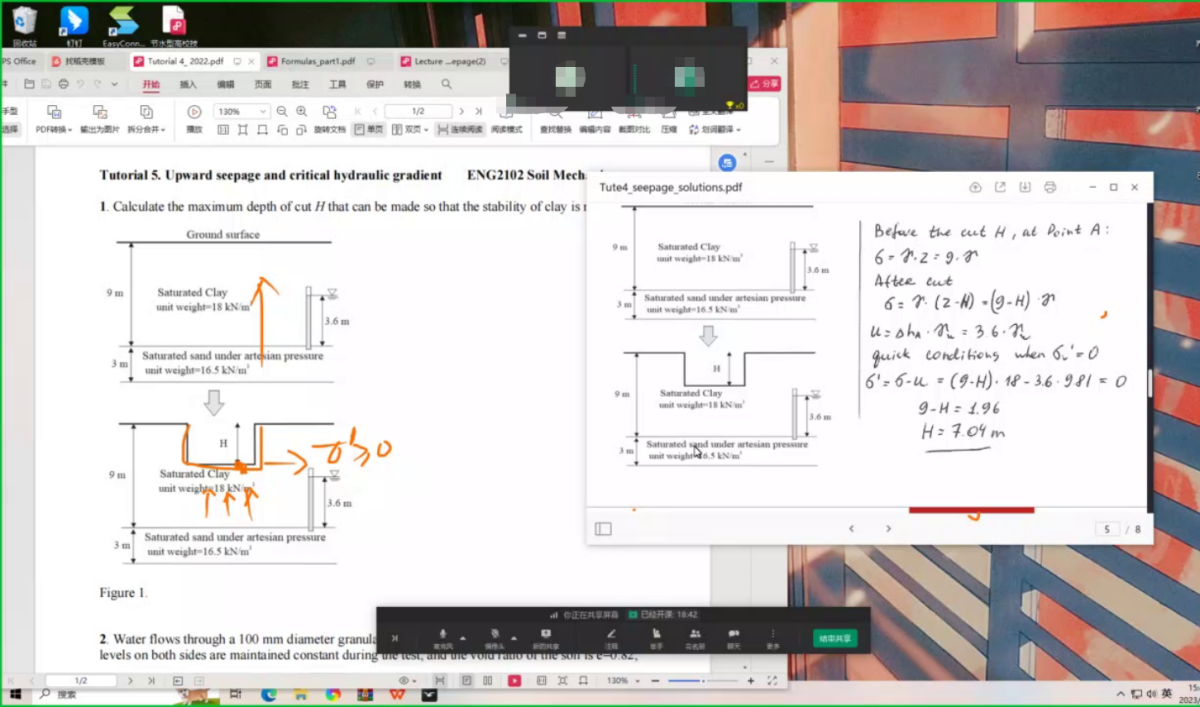 回收站
钉钉
EasyConn...
节水型高校技
PS Office
找稻壳模板
Tutorial 4_ 2022.pdf
Formulas_part1.pdf
Lecture ...epage(2)
开始 插入 编辑 页面 批注 工具 保护 转换
分享
手型
选择
PDF转换
输出为图片
拆分合并
播放
130%
旋转文档
单页
双页
连续阅读
阅读模式
1/2
查找替换
编辑内容
截图对比
压缩
划词翻译
x0
Tutorial 5. Upward seepage and critical hydraulic gradient ENG2102 Soil Mech
1. Calculate the maximum depth of cut H that can be made so that the stability of clay is
Ground surface
9 m
Saturated Clay
unit weight=18 kN/m³
3.6 m
3 m
Saturated sand under artesian pressure
unit weight=16.5 kN/m³
H
σ'≥0
9 m
Saturated Clay
unit weight=18 kN/m³
3.6 m
3 m
Saturated sand under artesian pressure
unit weight=16.5 kN/m³
Figure 1.
2. Water flows through a 100 mm diameter granula
levels on both sides are maintained constant during the test, and the void ratio of the soil is e=0.82,
Tute4_seepage_solutions.pdf
9 m
Saturated Clay
unit weight=18 kN/m³
3.6 m
3 m
Saturated sand under artesian pressure
unit weight=16.5 kN/m³
H
9 m
Saturated Clay
unit weight=18 kN/m³
3.6 m
3 m
Saturated sand under artesian pressure
unit weight=16.5 kN/m³
Before the cut H, at Point A:
σ = γ·z = 9·γ
After cut
σ = γ·(z-H) = (9-H)·γ
u = Δhₐ·γw = 3.6·γw
quick conditions when σv' = 0
σ' = σ-u = (9-H)·18 - 3.6·9.81 = 0
9-H = 1.96
H = 7.04 m
5 / 8
你正在共享屏幕
已经开课: 18:42
麦克风
摄像头
新的共享
注释
举手
花名册
聊天
更多
结束共享
1/2
130%
搜索
英
15:
2023/